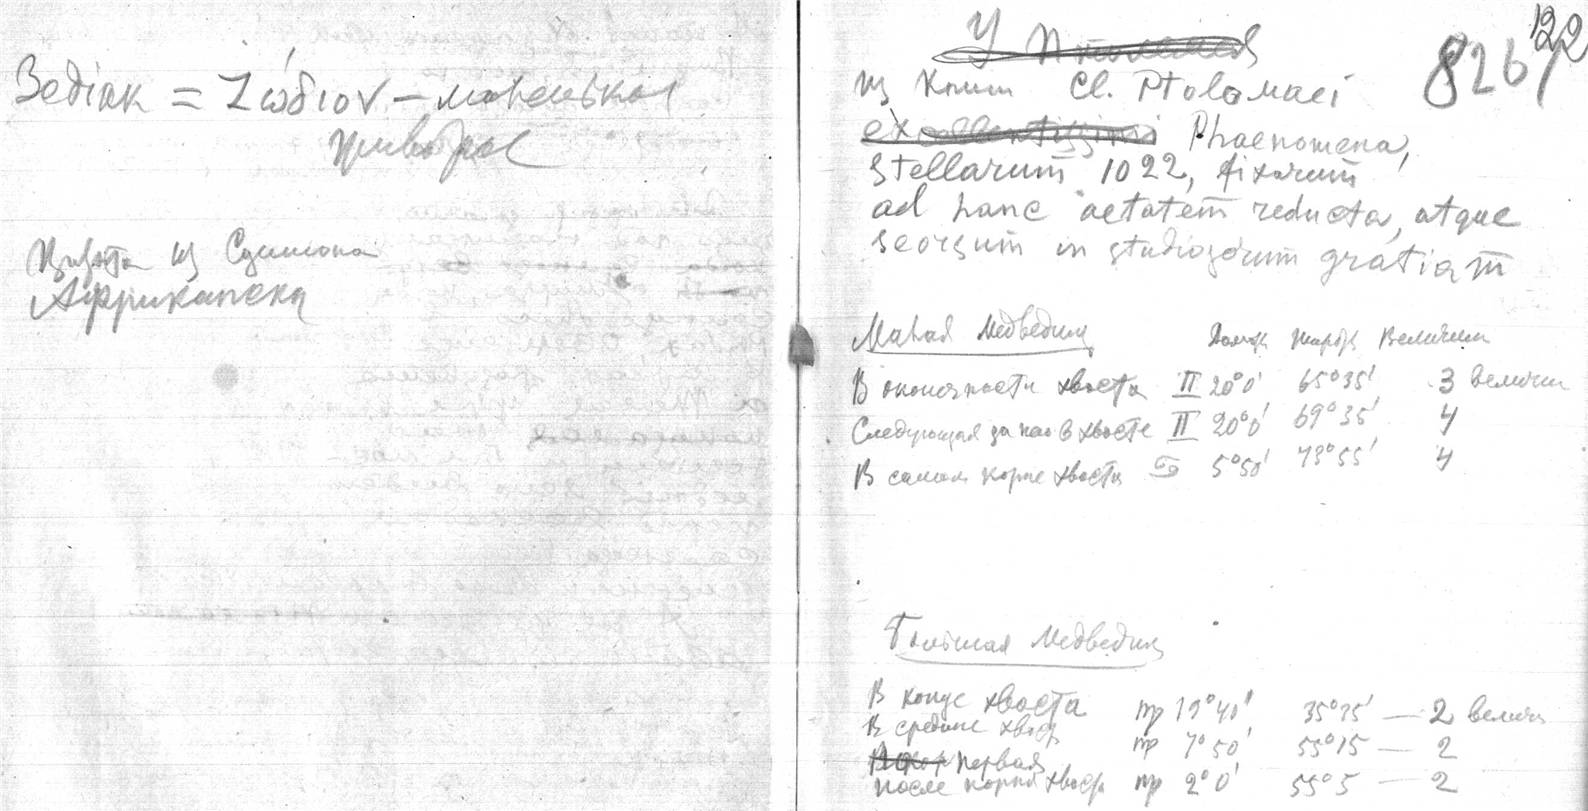 Зодiак = Ζώδιον – маленькая
животное
Цитата из Сциппиона
Аффриканска
У Птолемея
из Книги Cl. Ptolomaei
Phaenomena,
stellarum 1022, fixarum
ad hanc aetatem reducta, atque
seorsum in studiosorum gratiam
826 122
Малая Медведица Долгота Широта Величина
В оконечности хвоста II 20°0' 65°35' 3 величин
Следующая за нею в хвосте II 20°0' 69°35' 4
В самом корне хвоста ♋ 5°50' 73°55' 4
Большая Медведица
В конце хвоста mp 19°40' 35°15' — 2 велич
В средине хвоста mp 7°50' 55°15 — 2
первая
после корня хвоста mp 2°0' 55°5 — 2